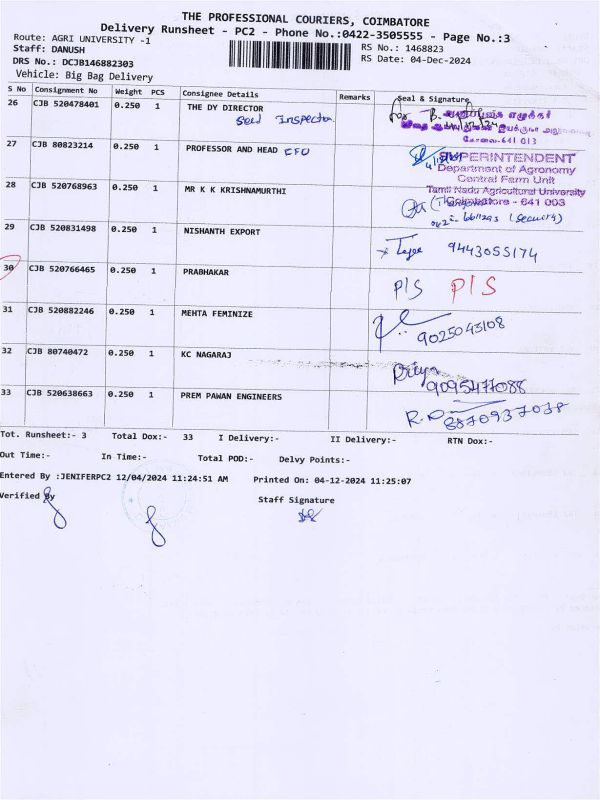 THE PROFESSIONAL COURIERS, COIMBATORE
Delivery Runsheet - PC2 - Phone No.:0422-3505555 - Page No.:3
Route: AGRI UNIVERSITY -1
RS No.: 1468823
Staff: DANUSH
RS Date: 04-Dec-2024
DRS No.: DCJB146882303
Vehicle: Big Bag Delivery
S No Consignment No Weight PCS Consignee Details Remarks Seal & Signature
26 CJB 520478401 0.250 1 THE DY DIRECTOR
Seed Inspector
கோவை-641 013
27 CJB 80823214 0.250 1 PROFESSOR AND HEAD CFU
SUPERINTENDENT
Department of Agronomy
Central Farm Unit
Tamil Nadu Agricultural University
Coimbatore - 641 003
28 CJB 520768963 0.250 1 MR K K KRISHNAMURTHI
(Security)
29 CJB 520831498 0.250 1 NISHANTH EXPORT
9443055174
30 CJB 520766465 0.250 1 PRABHAKAR P/S P/S
31 CJB 520882246 0.250 1 MEHTA FEMINIZE
9025043108
32 CJB 80740472 0.250 1 KC NAGARAJ
Priya
9095477088
33 CJB 520638663 0.250 1 PREM PAWAN ENGINEERS
8870937038
Tot. Runsheet:- 3 Total Dox:- 33 I Delivery:- II Delivery:- RTN Dox:-
Out Time:- In Time:- Total POD:- Delvy Points:-
Entered By :JENIFERPC2 12/04/2024 11:24:51 AM Printed On: 04-12-2024 11:25:07
Verified By Staff Signature